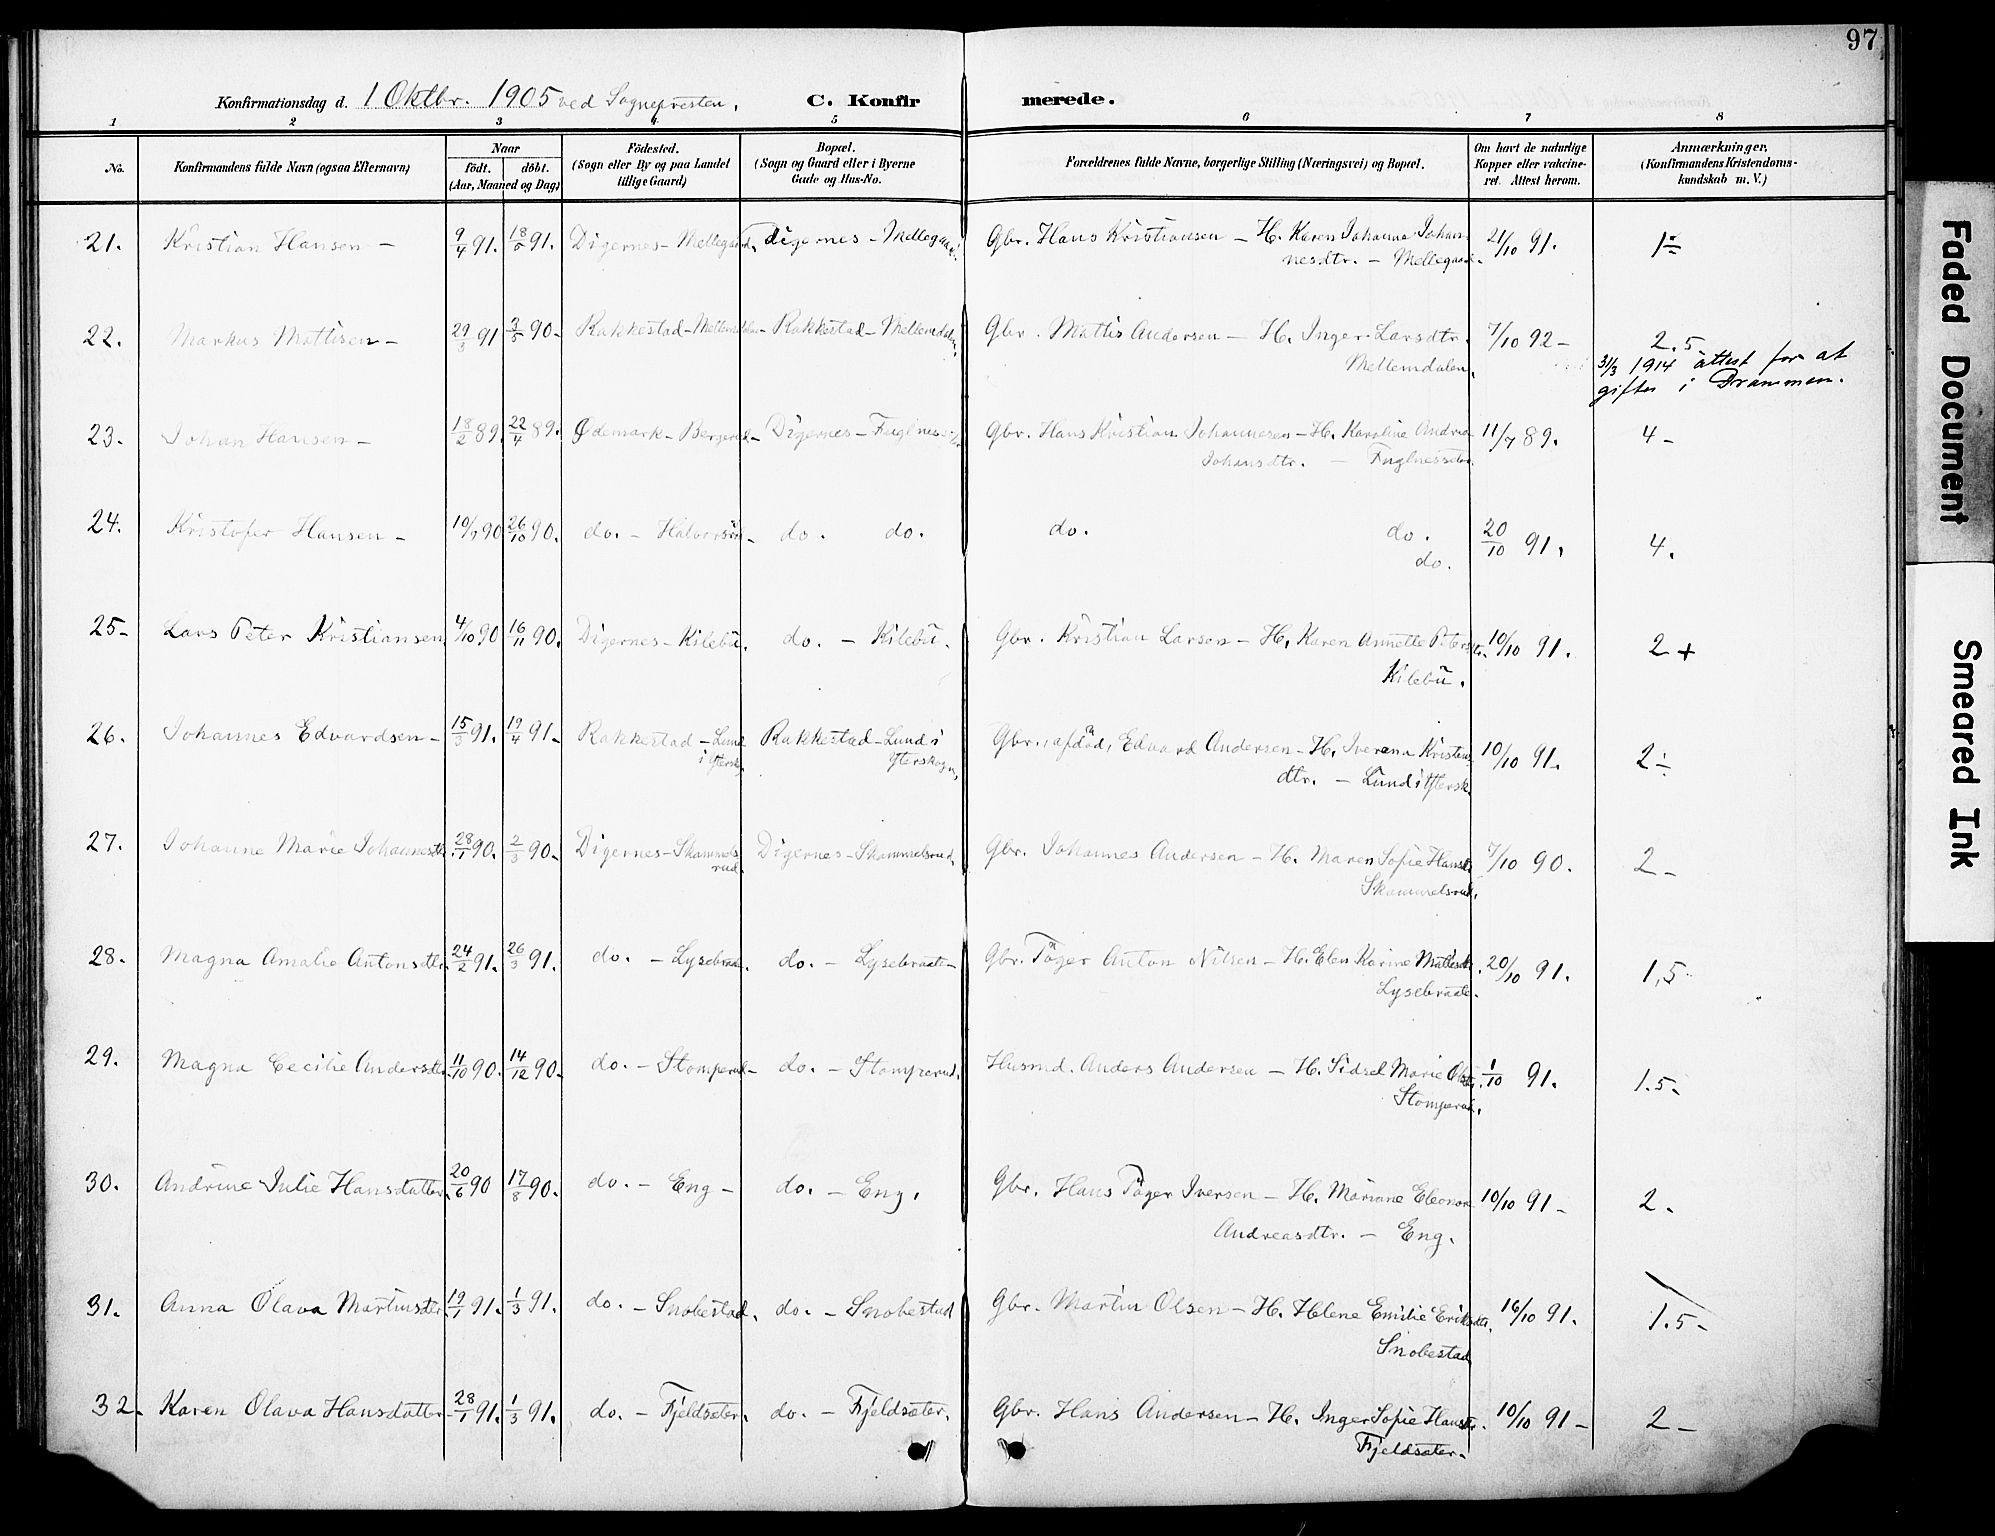 97
Konfirmationsdag d. 1 Oktbr. 1905 ved Sognepresten.
C. Konfirmerede.
1 2 3 4 5 6 7 8
No.
Konfirmandens fulde Navn (ogsaa Efternavn)
Naar
födt. döbt.
(Aar, Maaned og Dag)
Födested.
(Sogn eller By og paa Landet
tillige Gaard)
Bopæl.
(Sogn og Gaard eller i Byerne
Gade og Hus-No.
Forældrenes fulde Navne, borgerlige Stilling (Næringsvei) og Bopæl.
Om havt de naturlige
Kopper eller vakcine-
ret. Attest herom.
Anmærkninger.
(Konfirmandens Kristendoms-
kundskab m. V.)
21. Kristian Hansen – 9/4 91. 91. Digernes – Mellegaard. Digernes – Mellegaard. Gbr. Hans Kristiansen – H. Karen Johanna Johan- 21/10 91. 1
nesdtr. – Mellegaard.
22. Markus Mattisen – 29/3 91 3/5 90 – Rakkestad – Mellemdalen – Rakkestad – Mellemdalen. Gbr. Mattis Andersen – H. Inger Larsdtr. 7/10 92 – 2.5
Mellemdalen.
31/3 1914 attest for at
giftes i Drammen.
23. Johan Hansen – 18/2 89. 22/4 89. Ødemark – Bergerud – Digernes – Fuglnes Gbr. Hans Kristian Johannesen – H. Karoline Andrea 11/7 89. 4 –
Johansdtr. – Fuglnessæter
24. Kristofer Hansen – 10/9 90 26/10 90. do. – Halvorsrud – do. do. do. do. 20/10 91. 4.
do.
25 – Lars Peter Kristiansen 4/10 90 16/11 90. Digernes – Kilebu. do. – Kilebu. Gbr. Kristian Larsen – H. Karen Annette Petersdtr. 10/10 91. 2 +
Kilebu.
26. Johannes Edvardsen – 15/3 91. 19/4 91 – Rakkestad – Lund Rakkestad – Lund i Gbr. afdöd, Edvard Andersen – H. Iverena Kristians 10/10 91. 2 ÷
i Ytersk. Yterskogn, dtr. – Lund i Ytersk.
27. Johanne Marie Johannesdtr. 28/1 90. 2/3 90 – Digernes – Skammels Digernes – Skammelsrud. Gbr. Johannes Andersen – H. Maren Sofie Hansdtr 7/10 90. 2 –
rud. Skammelsrud.
28. Magna Amalie Antonsdtr. 24/2 91. 26/3 91. do. – Lysebraate. do. – Lysebraate – Gbr. Töger Anton Nilsen – H. Elen Karine Mattisdtr. 20/10 91. 1,5
Lysebraate.
29. Magna Cecilie Andersdtr. 11/10 90. 14/12 90. do. – Stomperud – do. – Stomperud. Husmd. Anders Andersen – H. Sidsel Marie Olsdtr. 1/10 91. 1.5 –
Stomperud.
30. Andrine Julie Hansdatter. 20/6 90 17/8 90. do. – Eng – do. – Eng. Gbr. Hans Töger Iversen – H. Mariane Eleonore 10/10 91 – 2.
Andreasdtr. – Eng.
31. Anna Olava Martinsdtr. 19/1 91. 1/3 91. do. – Snobestad. do. – Snobestad Gbr. Martin Olsen – H. Helene Emilie Eriksdtr. 16/10 91. 1.5 –
Snobestad
32. Karen Olava Hansdatter 28/1 91. 1/3 91. do. – Fjeldsæter. do. – Fjeldsæter. Gbr. Hans Andersen – H. Inger Sofie Hansdtr. 10/10 91 – 2 –
Fjeldsæter.
Faded Document
Smeared Ink